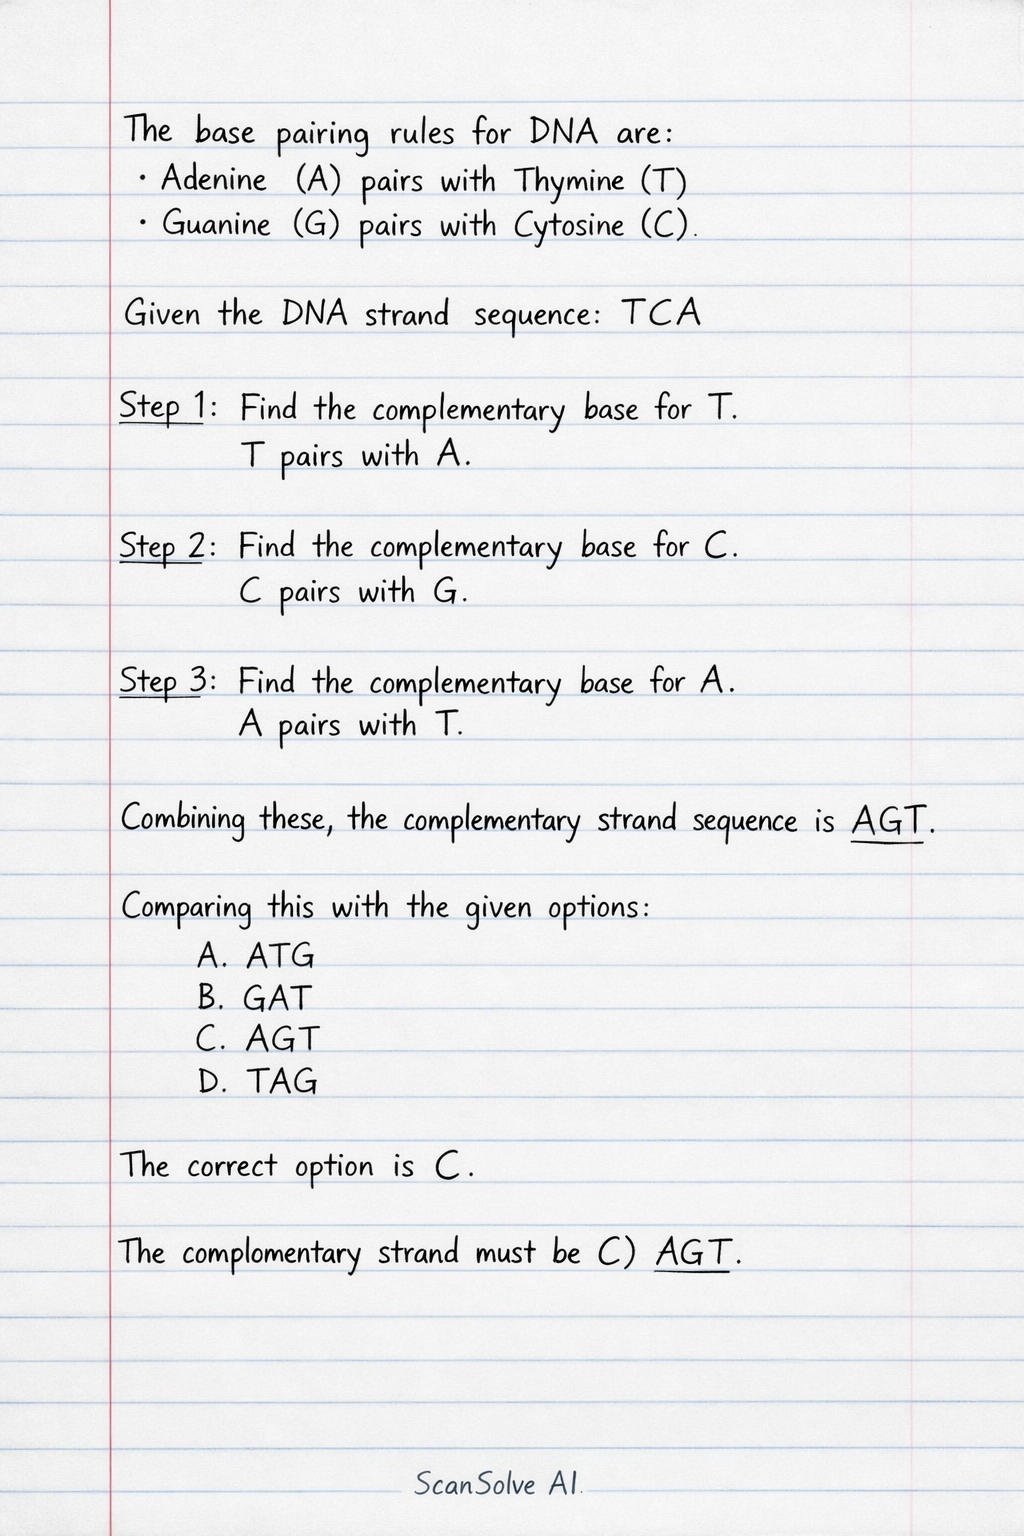 The base pairing rules for DNA are:
· Adenine (A) pairs with Thymine (T)
· Guanine (G) pairs with Cytosine (C).
Given the DNA strand sequence: TCA
Step 1: Find the complementary base for T.
T pairs with A.
Step 2: Find the complementary base for C.
C pairs with G.
Step 3: Find the complementary base for A.
A pairs with T.
Combining these, the complementary strand sequence is AGT.
Comparing this with the given options:
A. ATG
B. GAT
C. AGT
D. TAG
The correct option is C.
The complomentary strand must be C) AGT.
ScanSolve AI.